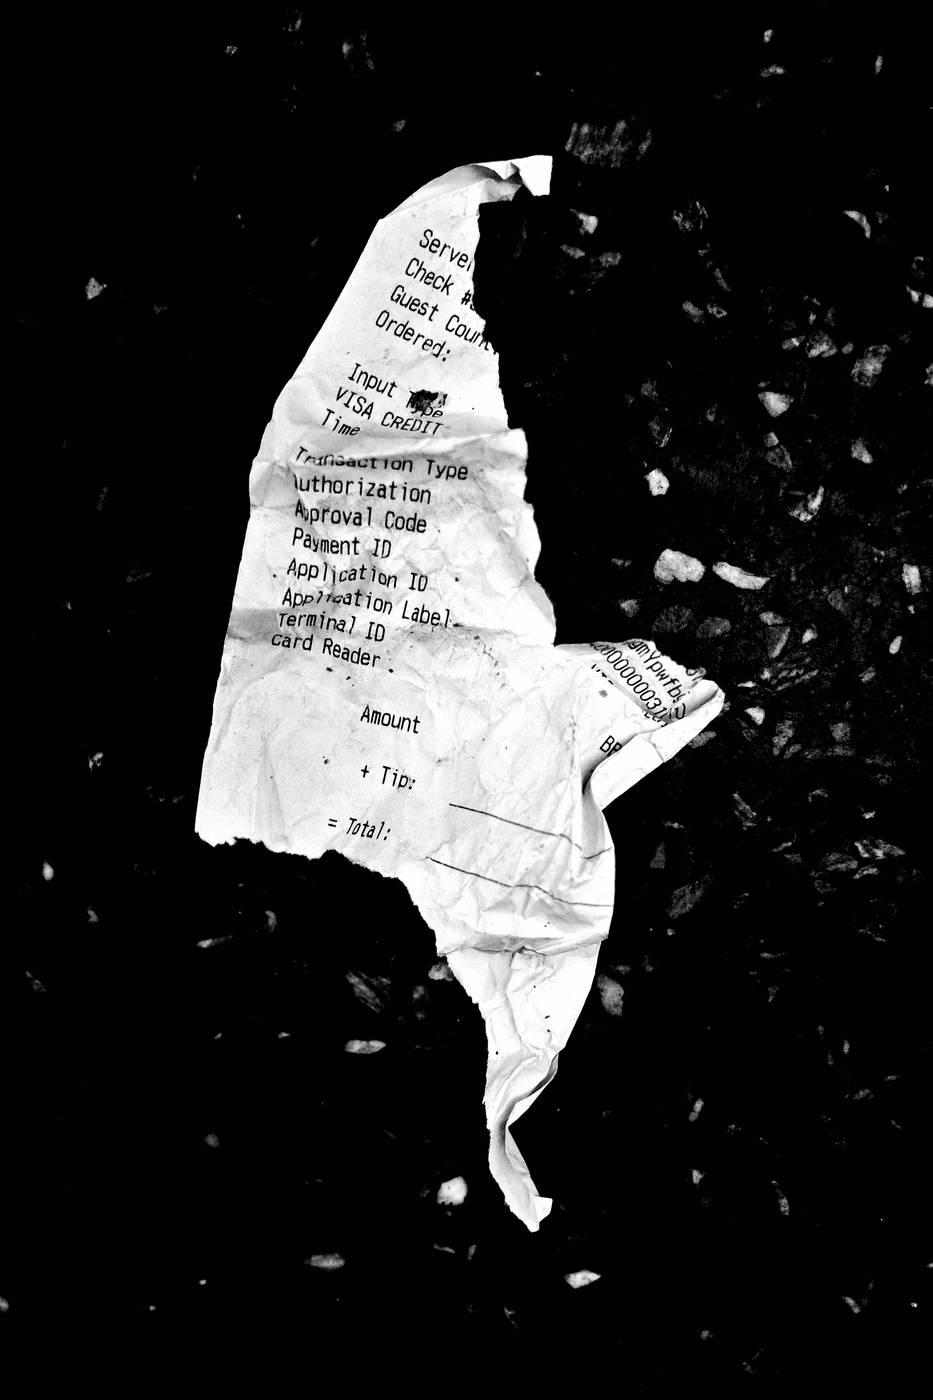 Server
Check #
Guest Count
Ordered:
Input Type
VISA CREDIT
Time
Transaction Type
Authorization
Approval Code
Payment ID
Application ID
Application Label
Terminal ID
Card Reader
mYpwfb
000000031
Amount
+ Tip:
= Total: